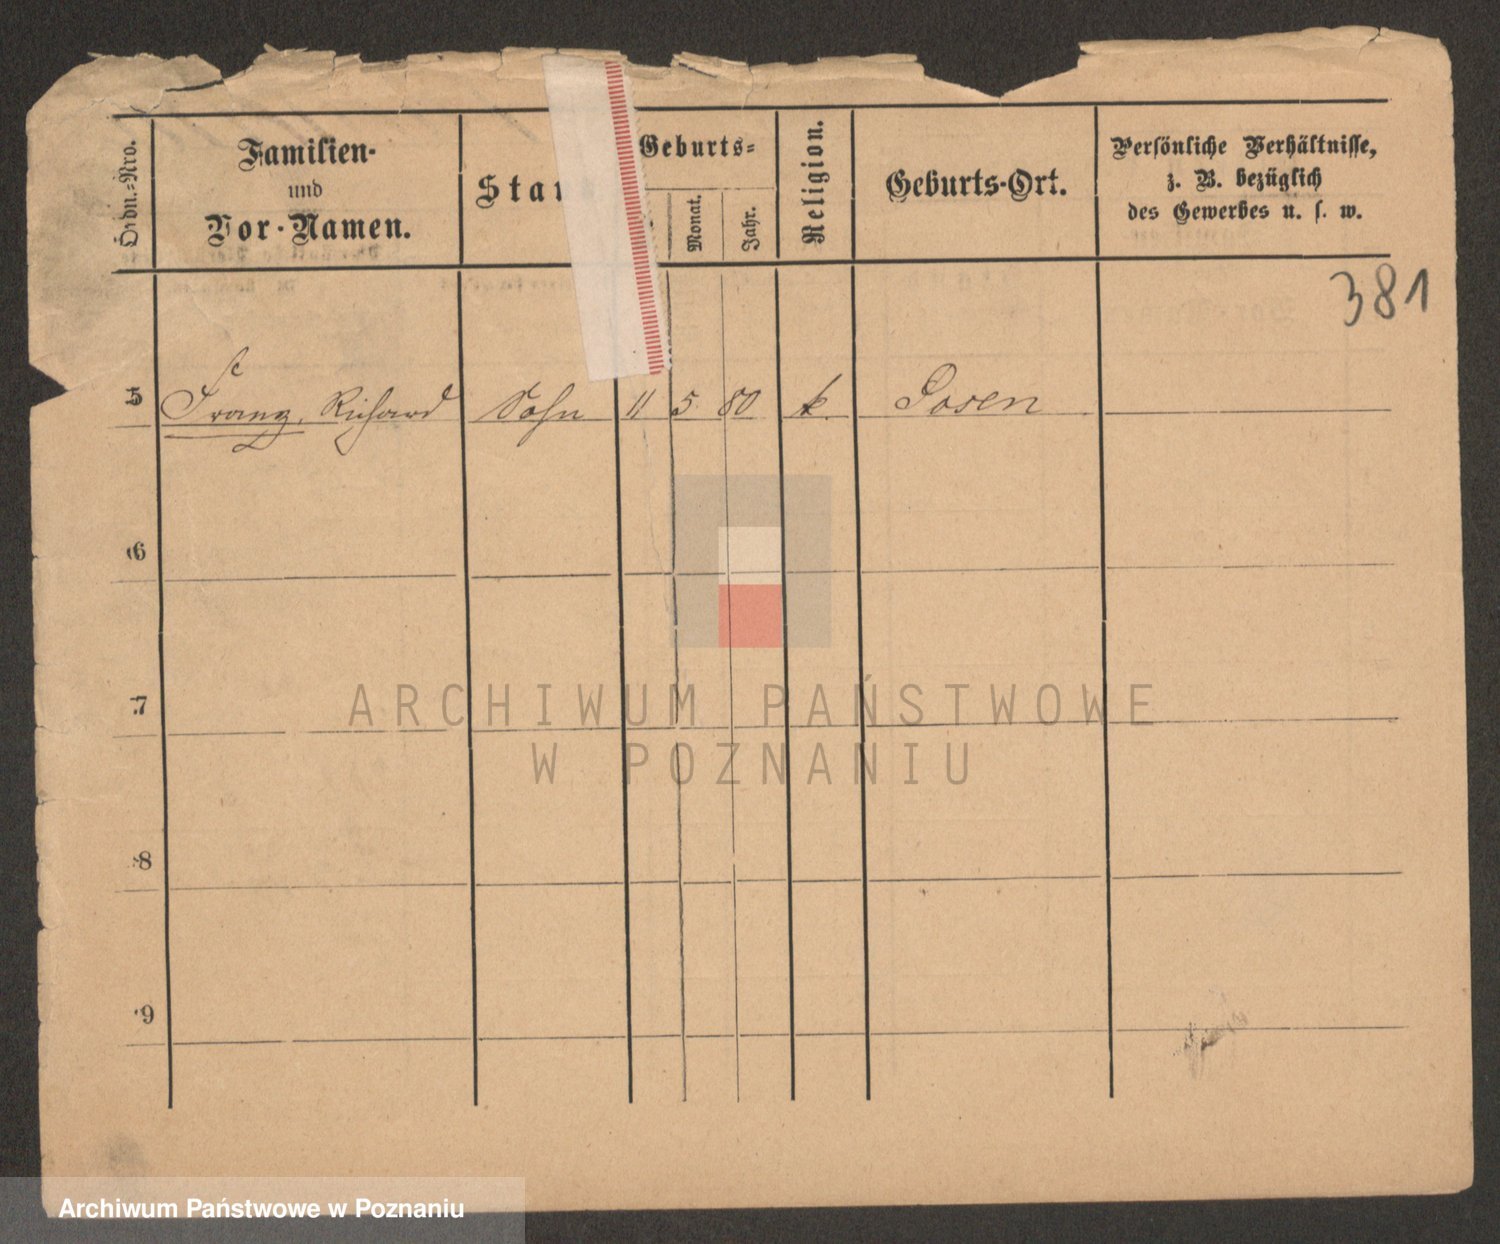 Ordn.-Nro.
Familien-
und
Vor-Namen.
Stan
Geburts-
Monat.
Jahr.
Religion.
Geburts-Ort.
Persönliche Verhältnisse,
z. B. bezüglich
des Gewerbes u. s. w.
381
5 Franz, Richard Sohn 11 5 80 k. Posen
6
7
8
9
ARCHIWUM PAŃSTWOWE
W POZNANIU
Archiwum Państwowe w Poznaniu